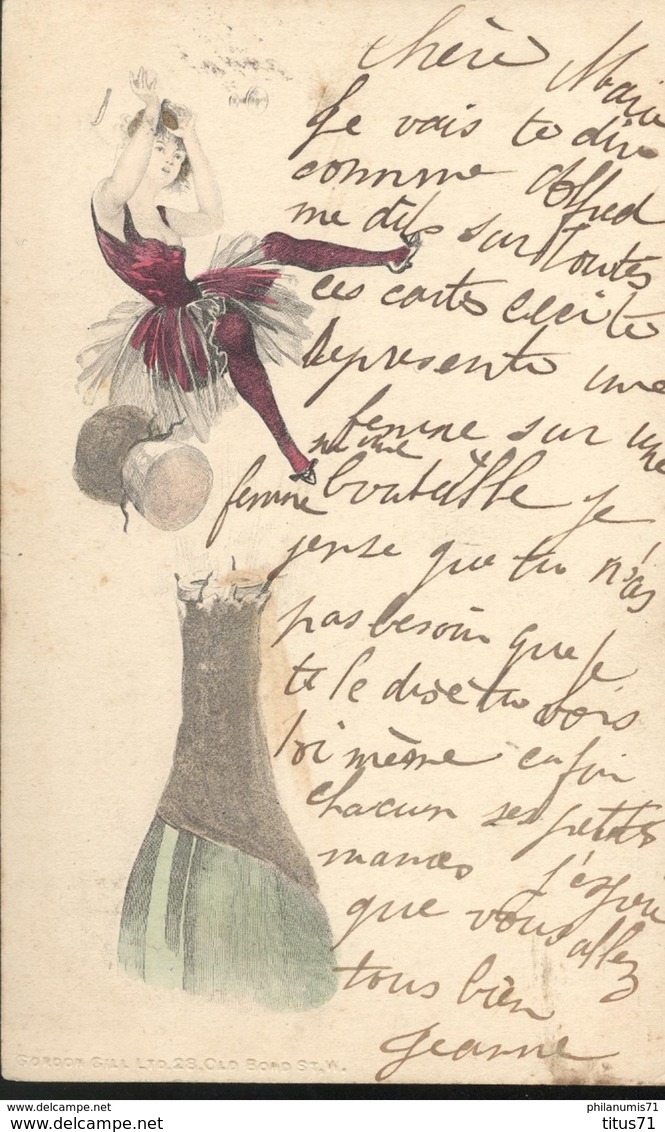 chère Marie
Je vais te dire
comme Alfred
me dis sur toutes
ces cartes ceci te
represente une
femme sur une
femme bouteille je
pense que tu n'as
pas besoin que je
te le dise tu vois
toi même enfin
chacun ses petits
manies j'espère
que vous allez
tous bien
Jeanne
GORDON GILL LTD, 28, OLD BOND ST. W.
philanumis71
www.delcampe.net
titus71